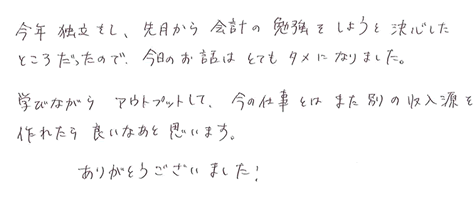 今年独立もし、先月から会計の勉強をしようと決心した
ところだったので、今日のお話はとてもタメになりました。
学びながらアウトプットして、今の仕事とはまた別の収入源を
作れたら良いなあと思います。
ありがとうございました!